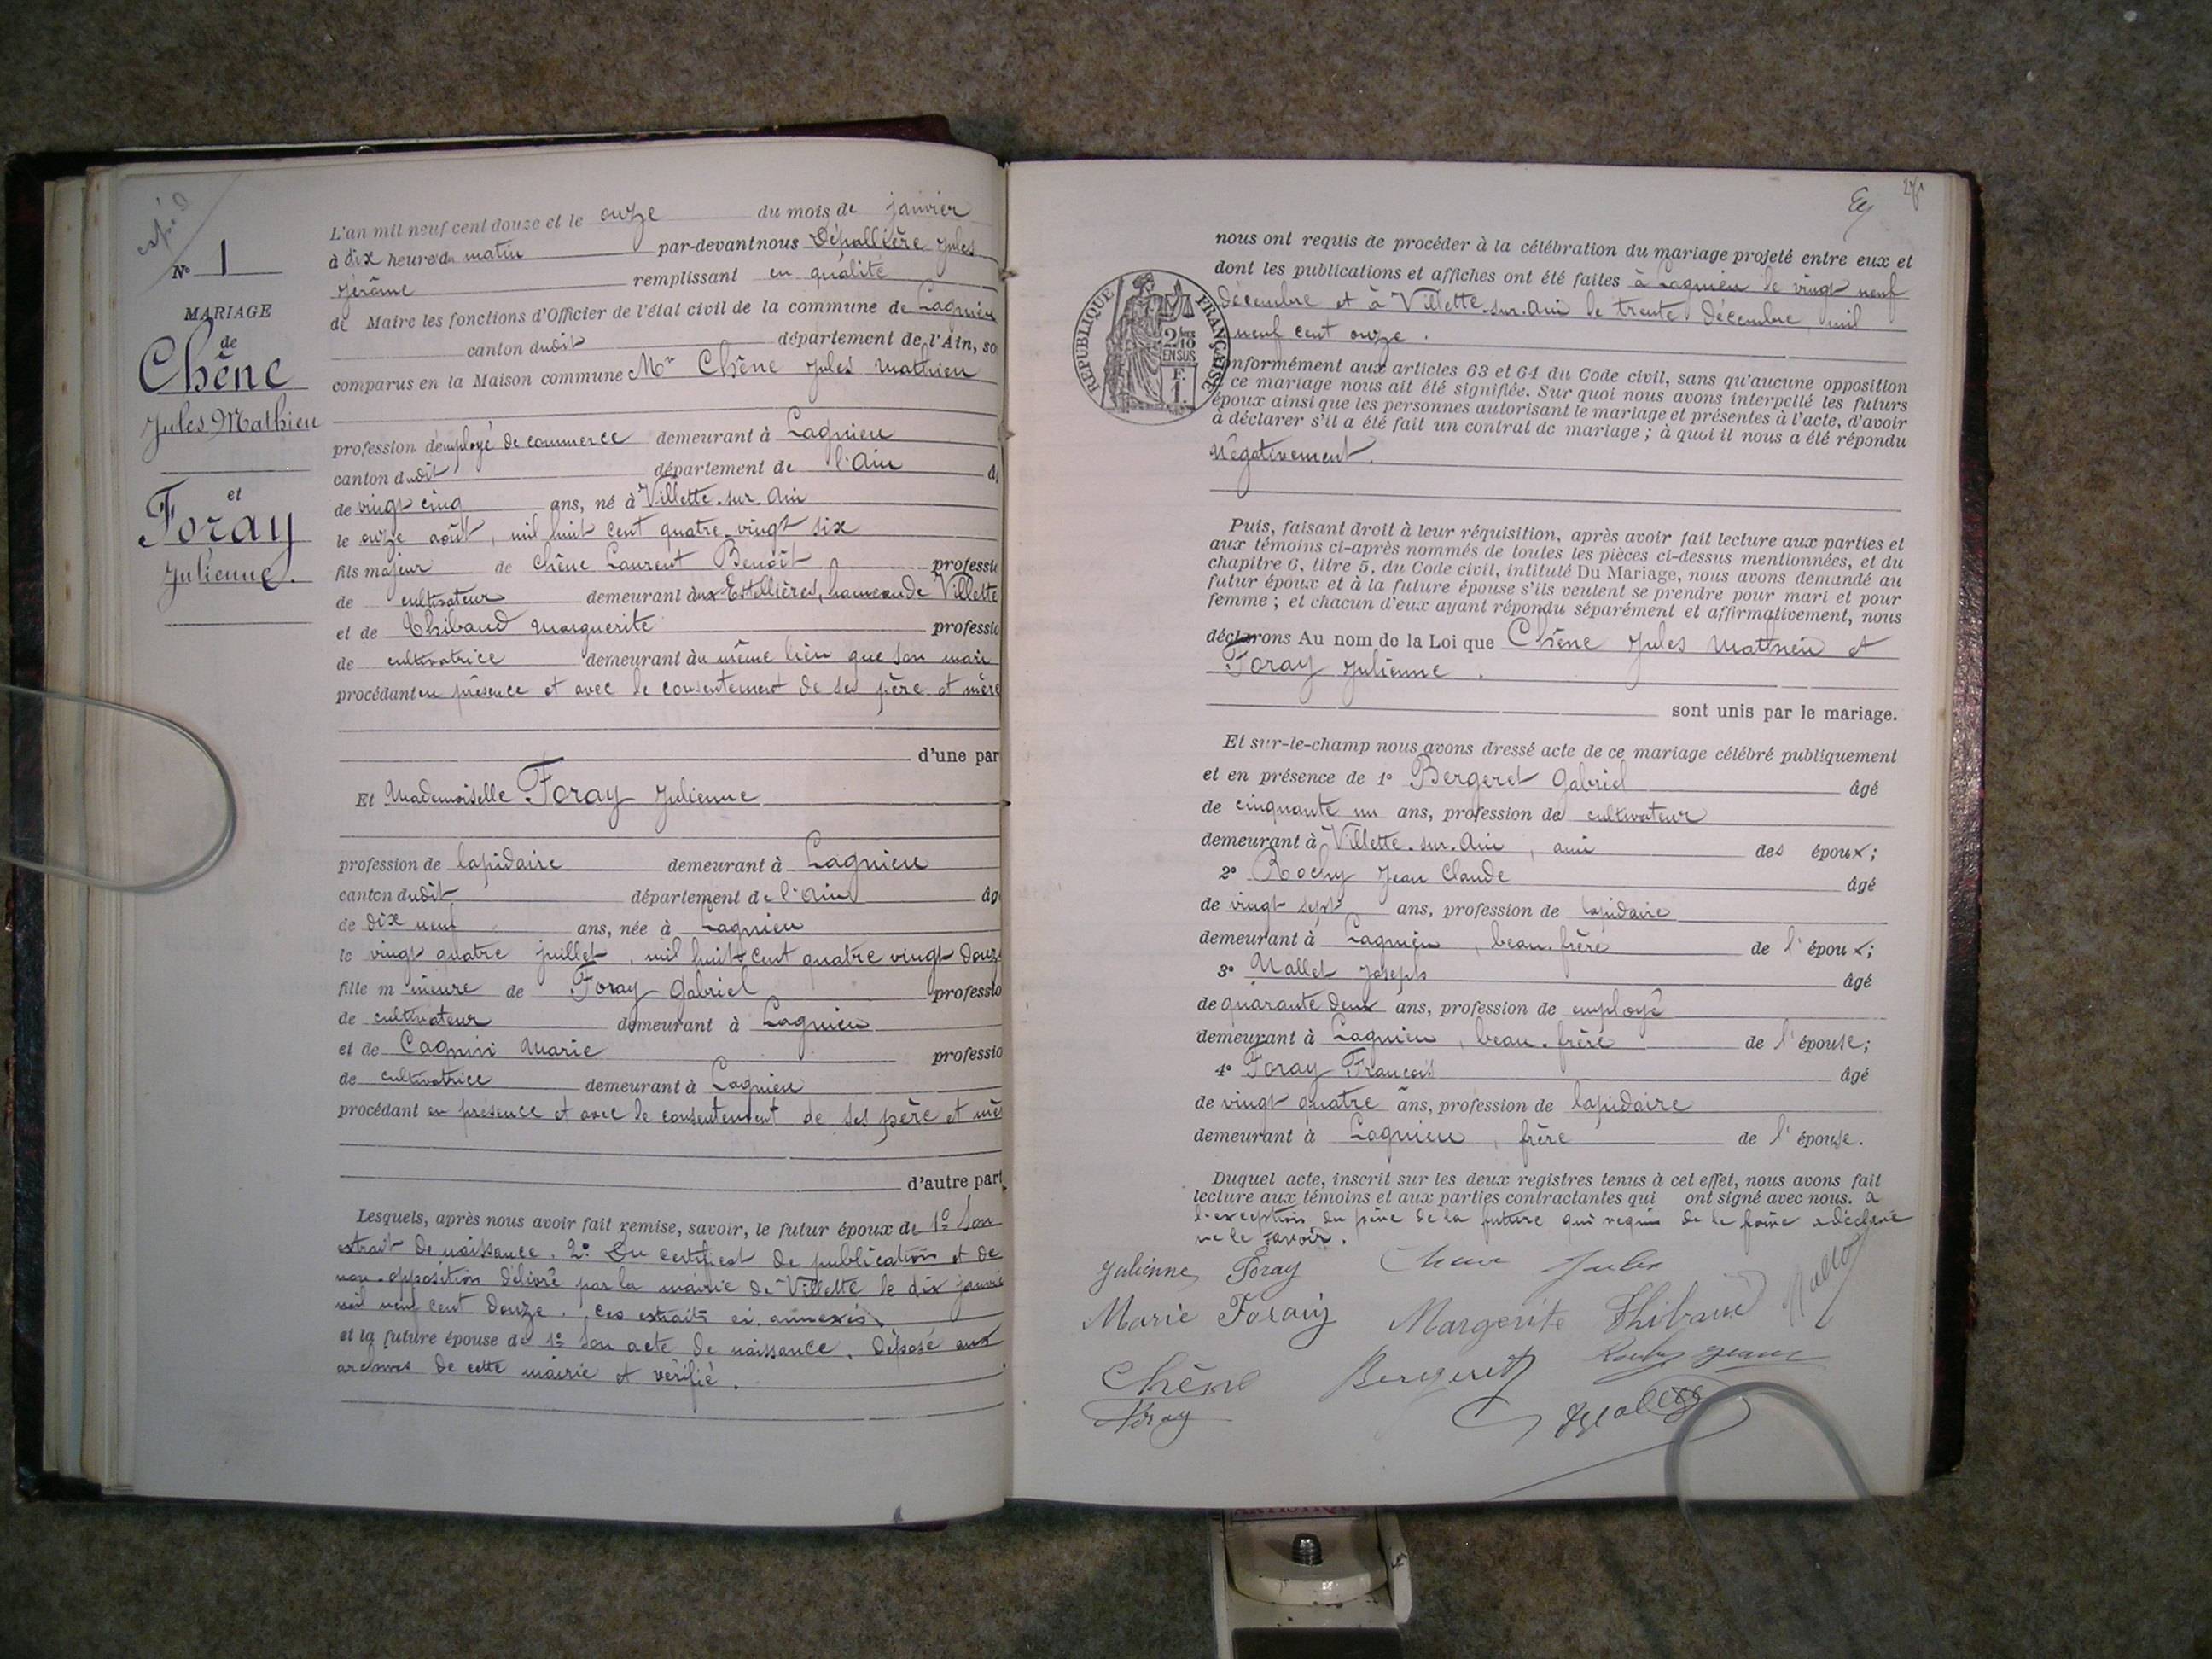 expéd
N° 1
MARIAGE
de
Chêne
Jules Mathieu
et
Foray
Julienne.
L'an mil neuf cent douze et le onze du mois de janvier
à dix heures du matin par-devant nous Dépollière Jules
Jérôme remplissant en qualité
de Maire les fonctions d'Officier de l'état civil de la commune de Lagnieu
canton dudit département de l'Ain, so
comparus en la Maison commune Mr Chêne Jules Mathieu
profession d'employé de commerce demeurant à Lagnieu
canton dudit département de l'Ain â
de vingt cinq ans, né à Villette-sur-Ain
le onze août, mil huit cent quatre-vingt six
fils majeur de Chêne Laurent Benoît professi
de cultivateur demeurant aux hameau de Villette
et de Thibaud Marguerite professio
de cultivatrice demeurant au même lieu que son mari
procédant en présence et avec le consentement de ses père et mère
d'une par
Et Mademoiselle Foray Julienne
profession de lapidaire demeurant à Lagnieu
canton dudit département de l'Ain âg
de dix neuf ans, née à Lagnieu
le vingt quatre juillet, mil huit cent quatre vingt douze
fille mineure de Foray Gabriel professio
de cultivateur demeurant à Lagnieu
et de Marie professio
de cultivatrice demeurant à Lagnieu
procédant en présence et avec le consentement de ses père et mè
d'autre part
Lesquels, après nous avoir fait remise, savoir, le futur époux de 1° Son
extrait de naissance. 2° Du certificat de publication et de
non-opposition délivré par la mairie de Villette le dix janvie
mil neuf cent douze. Ces extraits ci annexés.
et la future épouse de 1° Son acte de naissance, déposé aux
archives de cette mairie et vérifié.
RÉPUBLIQUE FRANÇAISE
2/10
EN SUS
F.
1.
nous ont requis de procéder à la célébration du mariage projeté entre eux et
dont les publications et affiches ont été faites à Lagnieu le vingt neuf
décembre et à Villette-sur-Ain le trente décembre, mil
neuf cent onze.
onformément aux articles 63 et 64 du Code civil, sans qu'aucune opposition
ce mariage nous ait été signifiée. Sur quoi nous avons interpellé les futurs
époux ainsi que les personnes autorisant le mariage et présentes à l'acte, d'avoir
à déclarer s'il a été fait un contrat de mariage ; à quoi il nous a été répondu
négativement.
Puis, faisant droit à leur réquisition, après avoir fait lecture aux parties et
aux témoins ci-après nommés de toutes les pièces ci-dessus mentionnées, et du
chapitre 6, titre 5, du Code civil, intitulé Du Mariage, nous avons demandé au
futur époux et à la future épouse s'ils veulent se prendre pour mari et pour
femme ; et chacun d'eux ayant répondu séparément et affirmativement, nous
déclarons Au nom de la Loi que Chêne Jules Mathieu et
Foray Julienne.
sont unis par le mariage.
Et sur-le-champ nous avons dressé acte de ce mariage célébré publiquement
et en présence de 1° Bergeret Gabriel âgé
de cinquante un ans, profession de cultivateur
demeurant à Villette-sur-Ain, ami des époux;
2° Rochy Jean Claude âgé
de vingt sept ans, profession de lapidaire
demeurant à Lagnieu, beau-frère de l'époux;
3° Mallet Joseph âgé
de quarante deux ans, profession de employé
demeurant à Lagnieu, beau-frère de l'épouse;
4° Foray François âgé
de vingt quatre ans, profession de lapidaire
demeurant à Lagnieu, frère de l'épouse.
Duquel acte, inscrit sur les deux registres tenus à cet effet, nous avons fait
lecture aux témoins et aux parties contractantes qui ont signé avec nous. à
l'exception du père de la future qui requis de le faire a déclaré
ne le savoir.
Julienne Foray Chene Jules
Marie Foray Margerite Thibaud Mallet
Chêne Bergeret Rochy Jean
Foray